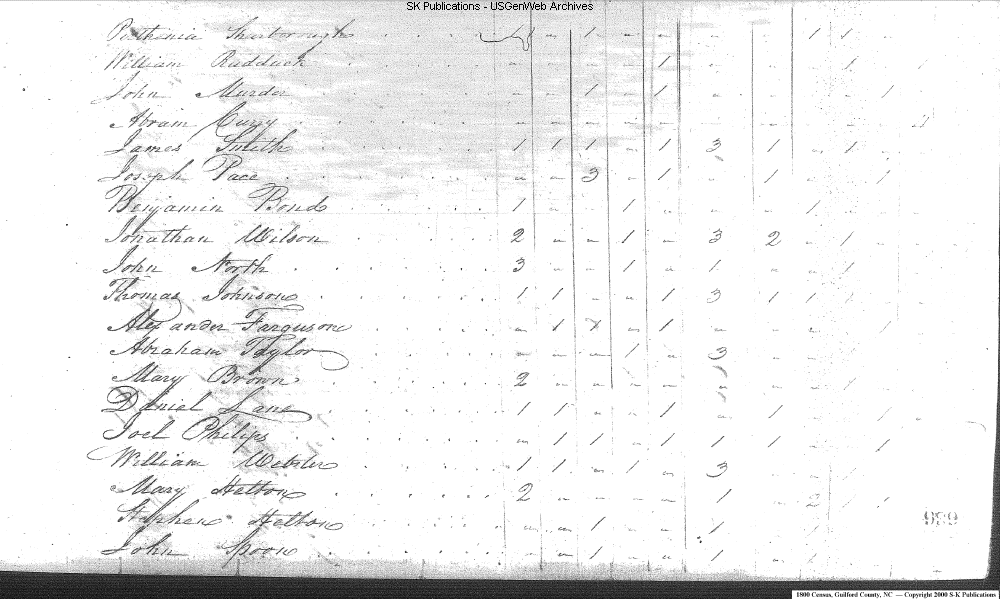 SK Publications - USGenWeb Archives
Parthenia Sharborough 1 " 1 " " " 1 1
William Radduck " " " " 1 " " 1
John Murder " " 1 " 1 " " 1
Abram Curry
James Smith 1 1 1 " 1 3 1 " 1
Joseph Pace " " 3 " 1 " 1 " 1
Benjamin Bond 1 " " 1 " " " 1
Jonathan Wilson 2 " " 1 " 3 2 " 1
John North 3 " " 1 " 1 " " 1
Thomas Johnson 1 1 " " 1 3 1 1 1
Alexander Farguson " 1 " 1 " " 1
Abraham Taylor " " " 1 " 3
Mary Brown 2 " " " " " " " 1
Daniel Lane 1 1 " " 1 " 1 " 1
Joel Philips " 1 1 " 1 1 1 " 1
William Webster 1 1 " 1 " 3
Mary Helton 2 " " " " 1 " 2 1
Stephen Helton " " 1 " " 1
John Spoon " " 1 " " 1
989
1800 Census, Guilford County, NC — Copyright 2000 S-K Publications